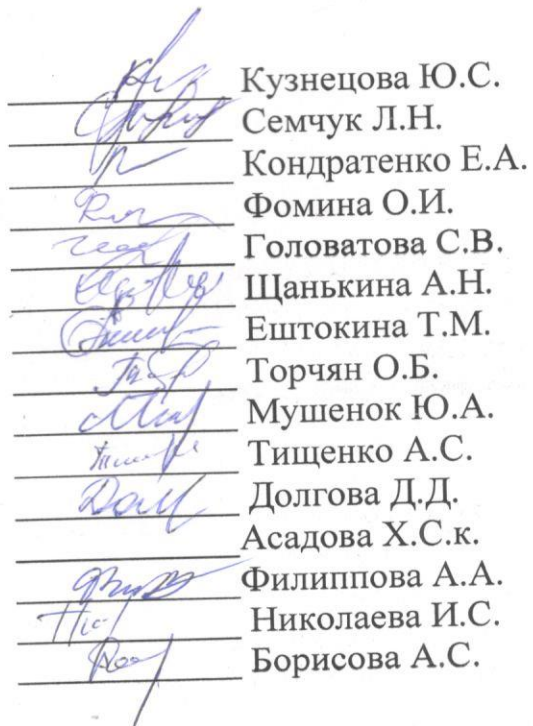 Кузнецова Ю.С.
Семчук Л.Н.
Кондратенко Е.А.
Фомина О.И.
Головатова С.В.
Щанькина А.Н.
Ештокина Т.М.
Торчян О.Б.
Мушенок Ю.А.
Тищенко А.С.
Долгова Д.Д.
Асадова Х.С.к.
Филиппова А.А.
Николаева И.С.
Борисова А.С.